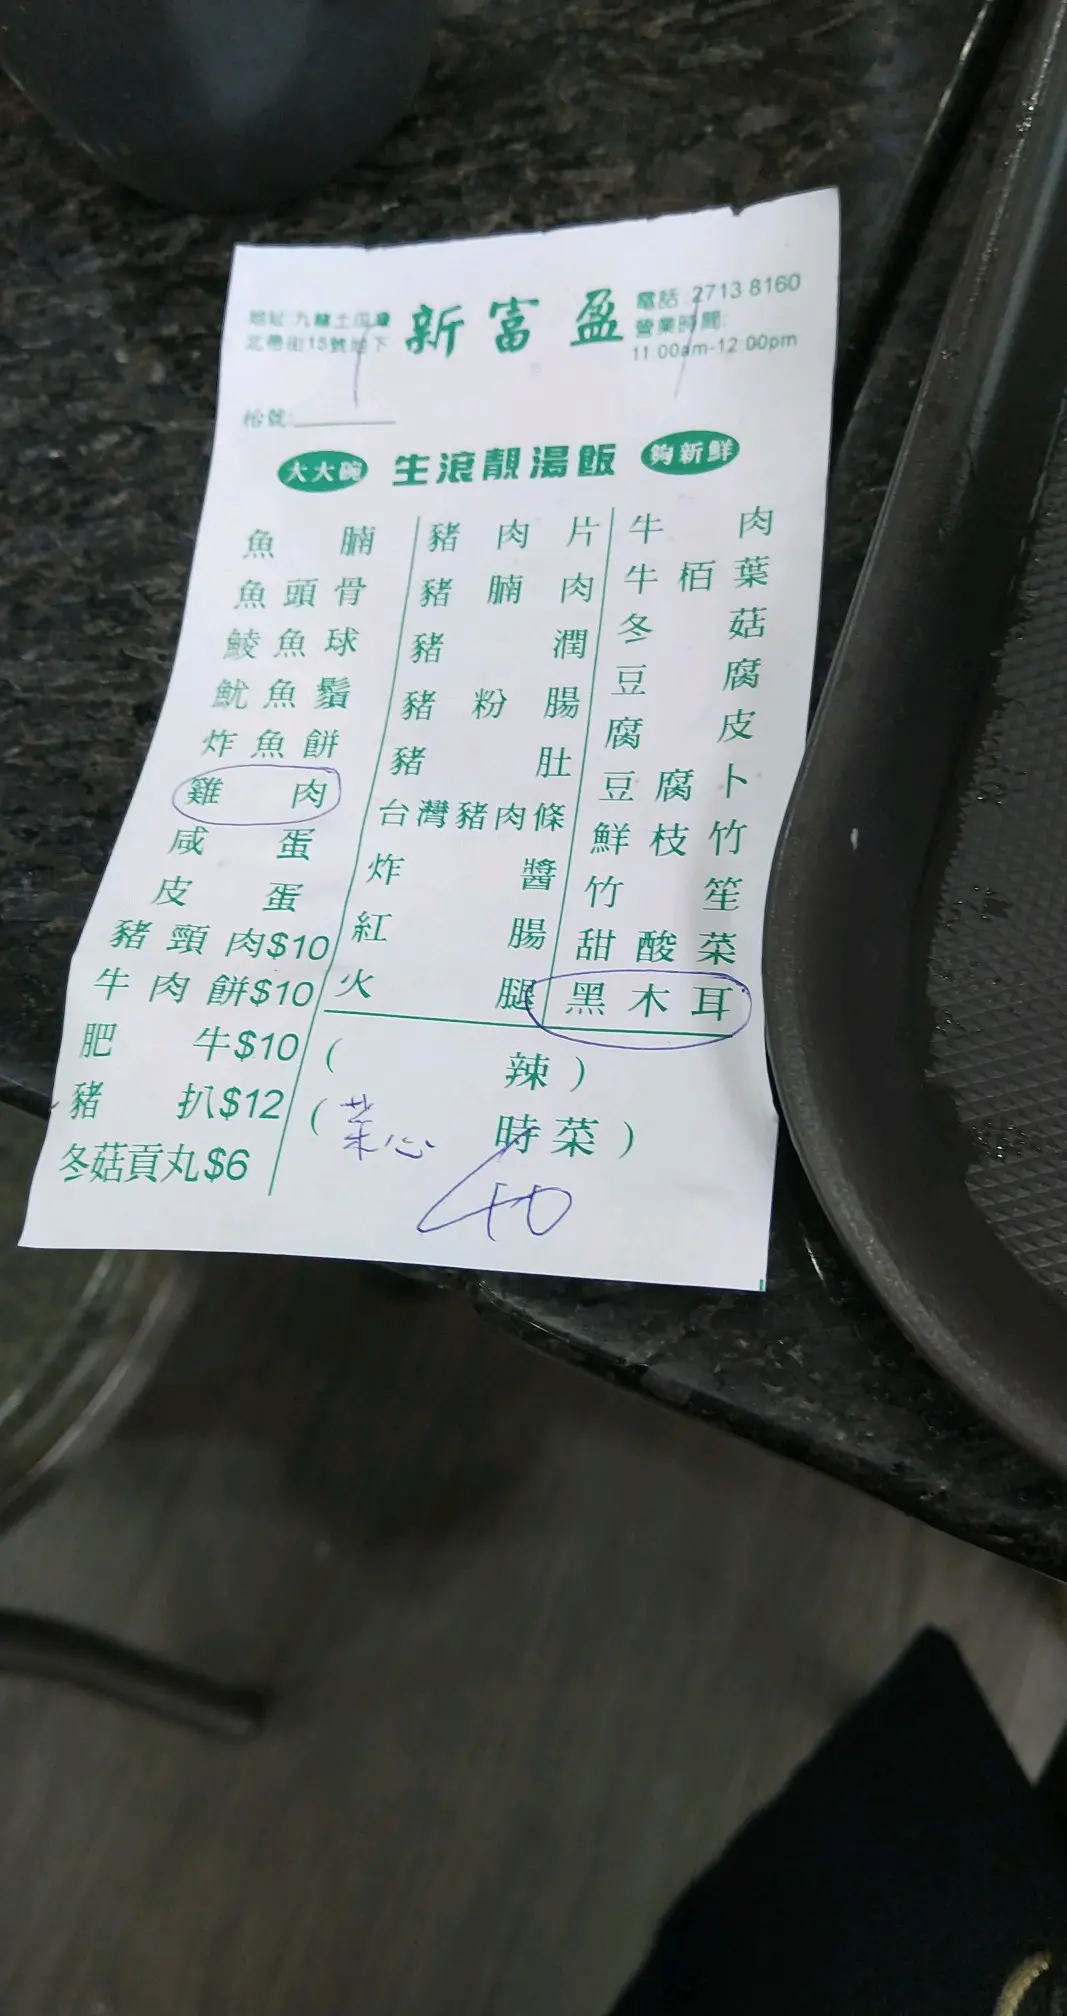 新富盈
地址:九龍土瓜灣
北帝街15號地下
電話:2713 8160
營業時間:
11:00am-12:00pm
枱號:
大大碗 生滾靚湯飯 夠新鮮
魚腩
魚頭骨
鯪魚球
魷魚鬚
炸魚餅
雞肉
咸蛋
皮蛋
豬頸肉$10
牛肉餅$10
肥牛$10
豬扒$12
冬菇貢丸$6
豬肉片
豬腩肉
豬潤
豬粉腸
豬肚
台灣豬肉條
炸醬
紅腸
火腿
牛肉
牛栢葉
冬菇
豆腐
腐皮
豆腐卜
鮮枝竹
竹笙
甜酸菜
黑木耳
( 辣 )
( 菜心 時菜 )
40